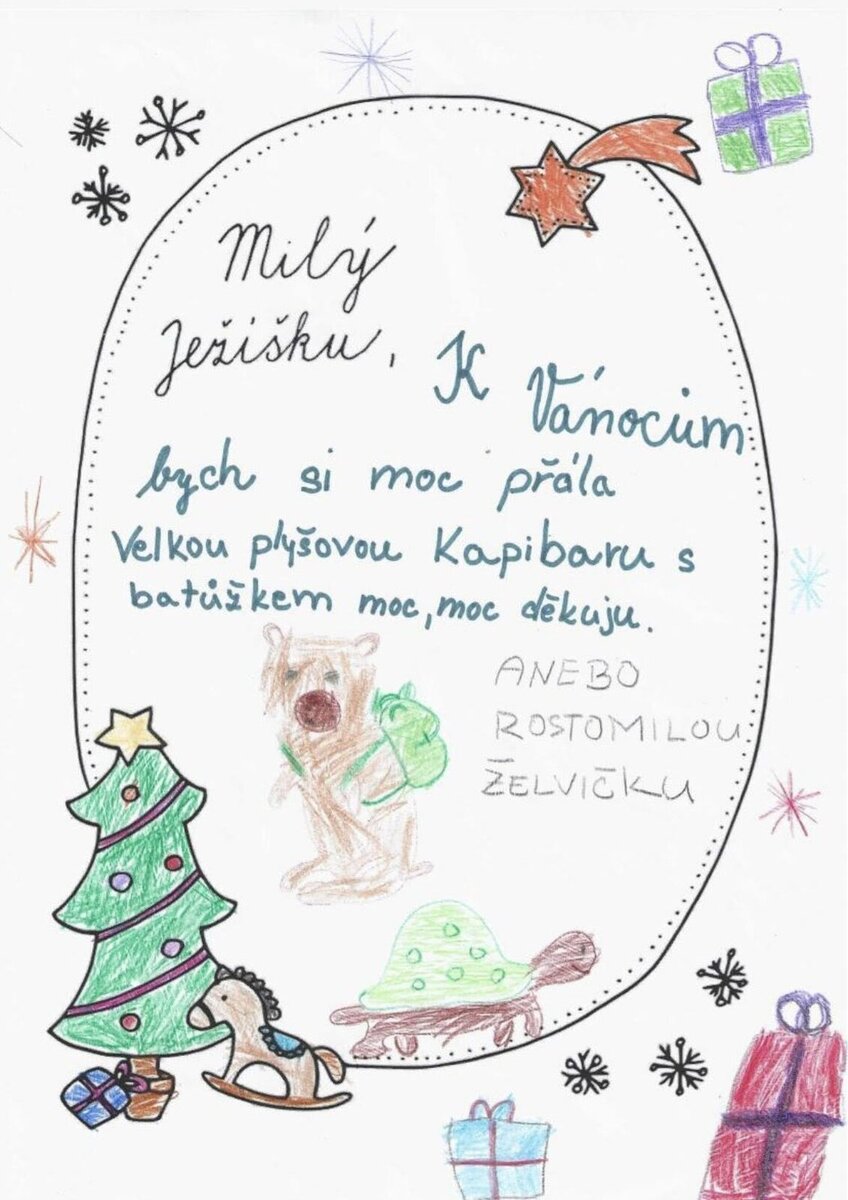 Milý
Ježišku,
K Vánocům
bych si moc přála
Velkou plyšovou Kapibaru s
batůžkem moc, moc děkuju.
ANEBO
ROSTOMILOU
ŽELVIČKU